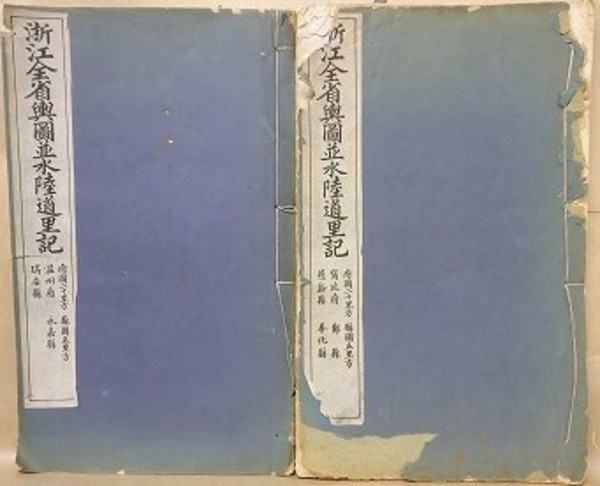 浙江全省輿圖並水陸道里記
府圖二十里方 縣圖五里方
溫州府 永嘉縣
瑞安縣
浙江全省輿圖並水陸道里記
府圖二十里方 縣圖五里方
寧波府 鄞縣
慈谿縣 奉化縣